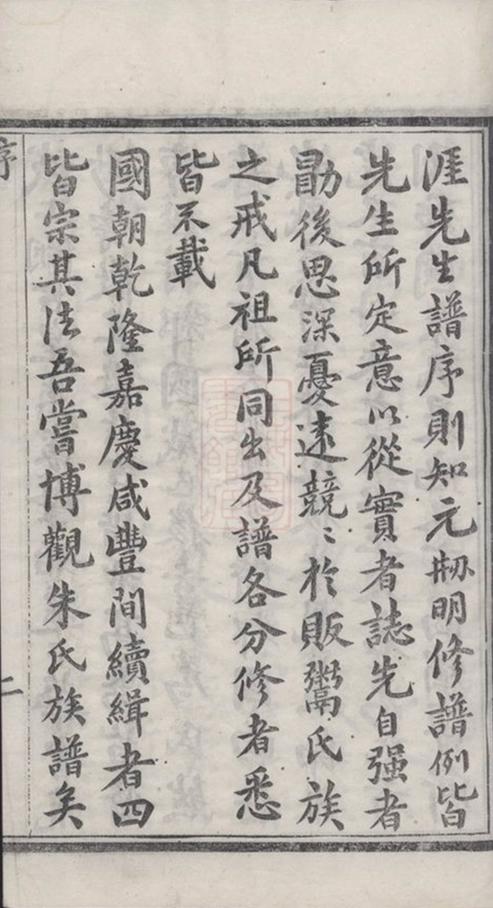 涯先生譜序則知元刱明修譜例皆
先生所定意以從實者誌先自强者
勖後思深憂遠競〻於販鬻氏族
之戒凡祖所同出及譜各分修者悉
皆不載
國朝乾隆嘉慶咸豐間續緝者四
皆宗其法吾嘗博觀朱氏族譜矣
序
二